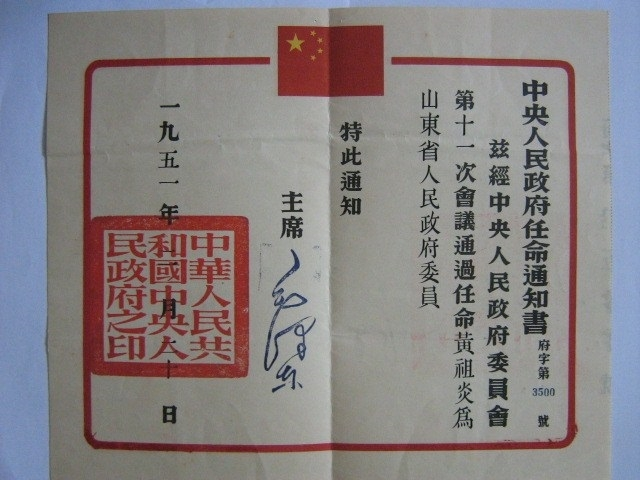 中央人民政府任命通知書
府字第3500號
玆經中央人民政府委員會
第十一次會議通過任命黃祖炎爲
山東省人民政府委員
特此通知
主席
毛澤東
一九五一年二月二十日
中華人民共
和國中央人
民政府之印